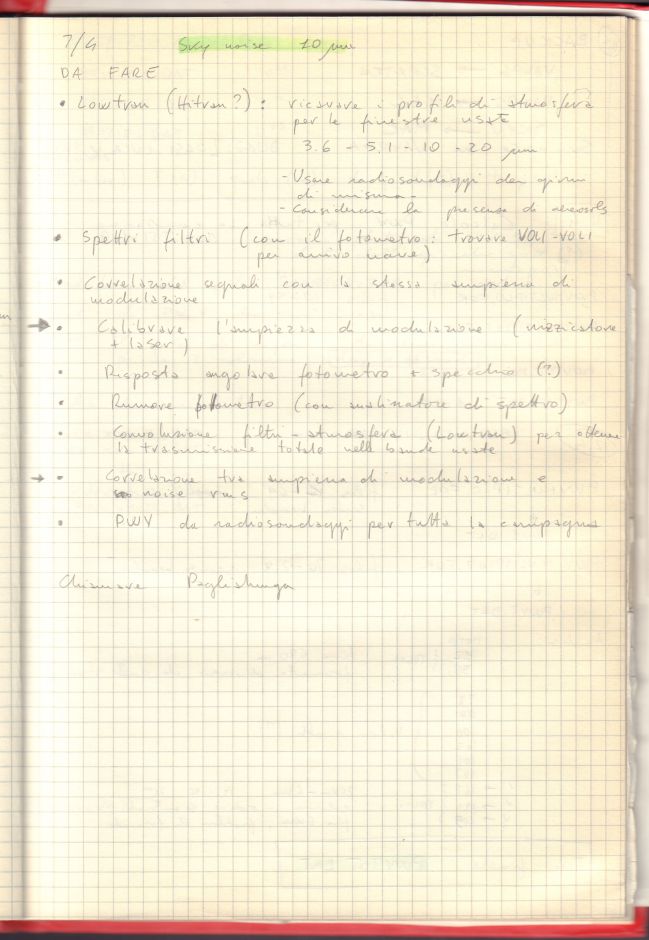 7/4 Sky noise 10 μm
DA FARE
• Lowtran (Hitran?): ricavare i profili di atmosfera
per le finestre usate
3.6 - 5.1 - 10 - 20 μm
- Usare radiosondaggi dei giorni
di misura -
- Considerare la presenza di aerosols
• Spettri filtri (con il fotometro: trovare VOLI-VOLI
per arrivo nave)
• Correlazione segnali con la stessa ampiezza di
modulazione
→ • Calibrare l'ampiezza di modulazione (nizzicatore
+ laser)
• Risposta angolare fotometro + specchio (?)
• Rumore fotometro (con analizzatore di spettro)
• Convoluzione filtri - atmosfera (Lowtran) per ottenere
la trasmissione totale nelle bande usate
→ • Correlazione tra ampiezza di modulazione e
noise rms
• PWV da radiosondaggi per tutta la campagna
Chiamare